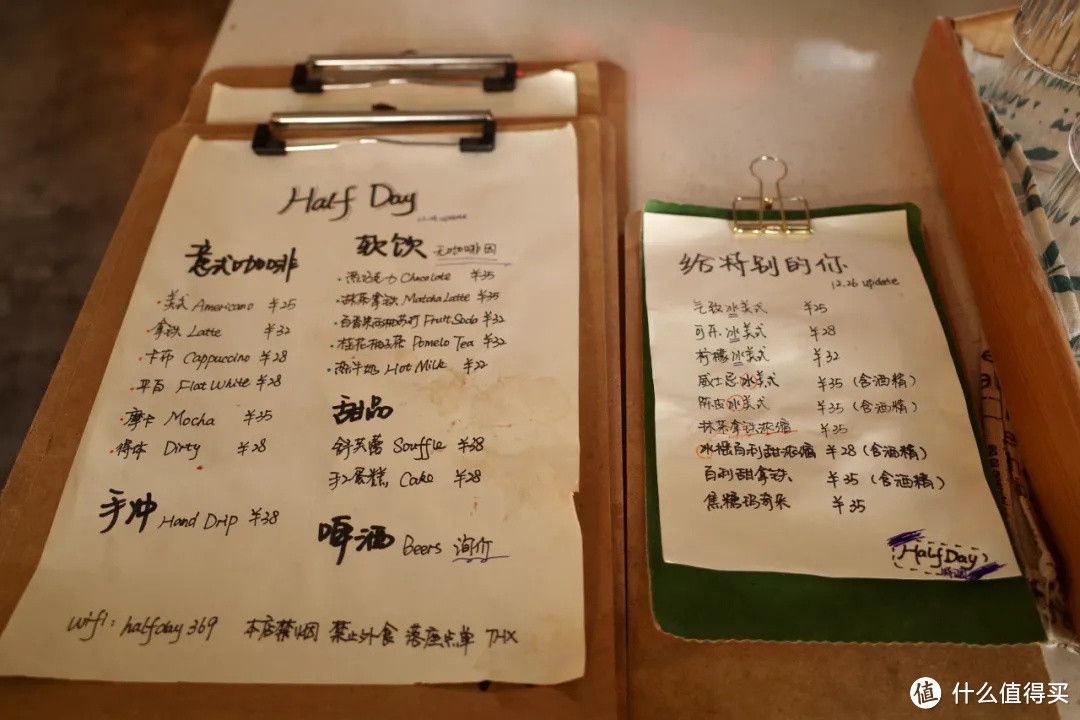 Half Day
意式咖啡
美式 Americano ¥25
拿铁 Latte ¥32
卡布 Cappuccino ¥28
平白 Flat White ¥28
摩卡 Mocha ¥35
Dirty ¥28
手冲 Hand Drip ¥38
软饮 无咖啡因
热巧克力 Chocolate ¥35
抹茶拿铁 Matcha Latte ¥35
百香果西柚苏打 Fruit Soda ¥32
桂花柚子茶 Pomelo Tea ¥32
热牛奶 Hot Milk ¥22
甜品
舒芙蕾 Souffle ¥38
手工蛋糕 Cake ¥28
啤酒 Beers 询价
wifi: halfday369 本店禁烟 禁止外食 落座点单 THX
给特别的你
12.26 update
气致冰美式 ¥25
可乐冰美式 ¥28
柠檬冰美式 ¥32
威士忌冰美式 ¥35 (含酒精)
陈皮冰美式 ¥35 (含酒精)
抹茶拿铁浓缩 ¥35
冰摇百利甜浓缩 ¥28 (含酒精)
百利甜拿铁 ¥35 (含酒精)
焦糖玛奇朵 ¥35
Half Day
值 什么值得买